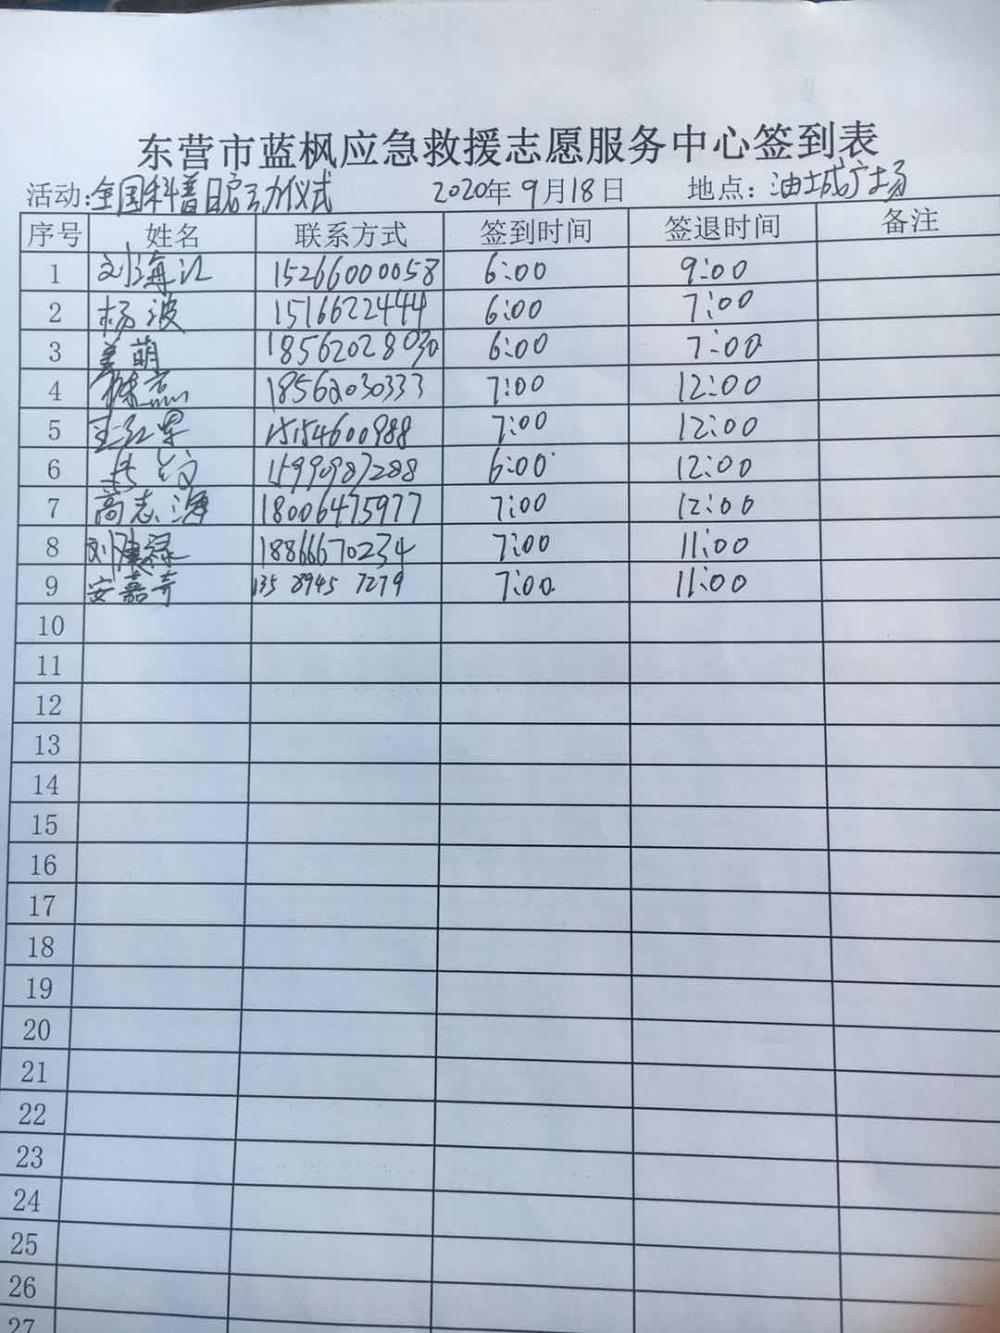 东营市蓝枫应急救援志愿服务中心签到表
活动:全国科普日启动仪式 2020年9月18日 地点:油城广场
序号 姓名 联系方式 签到时间 签退时间 备注
1 刘海江 15266000058 6:00 9:00
2 杨波 1516622444 6:00 7:00
3 姜萌 18562028030 6:00 7:00
4 18562030333 7:00 12:00
5 王红军 15154600988 7:00 12:00
6 15990987288 6:00 12:00
7 高志海 18006475977 7:00 12:00
8 刘 18866670234 7:00 11:00
9 安嘉奇 135 8945 7279 7:00 11:00
10
11
12
13
14
15
16
17
18
19
20
21
22
23
24
25
26
27